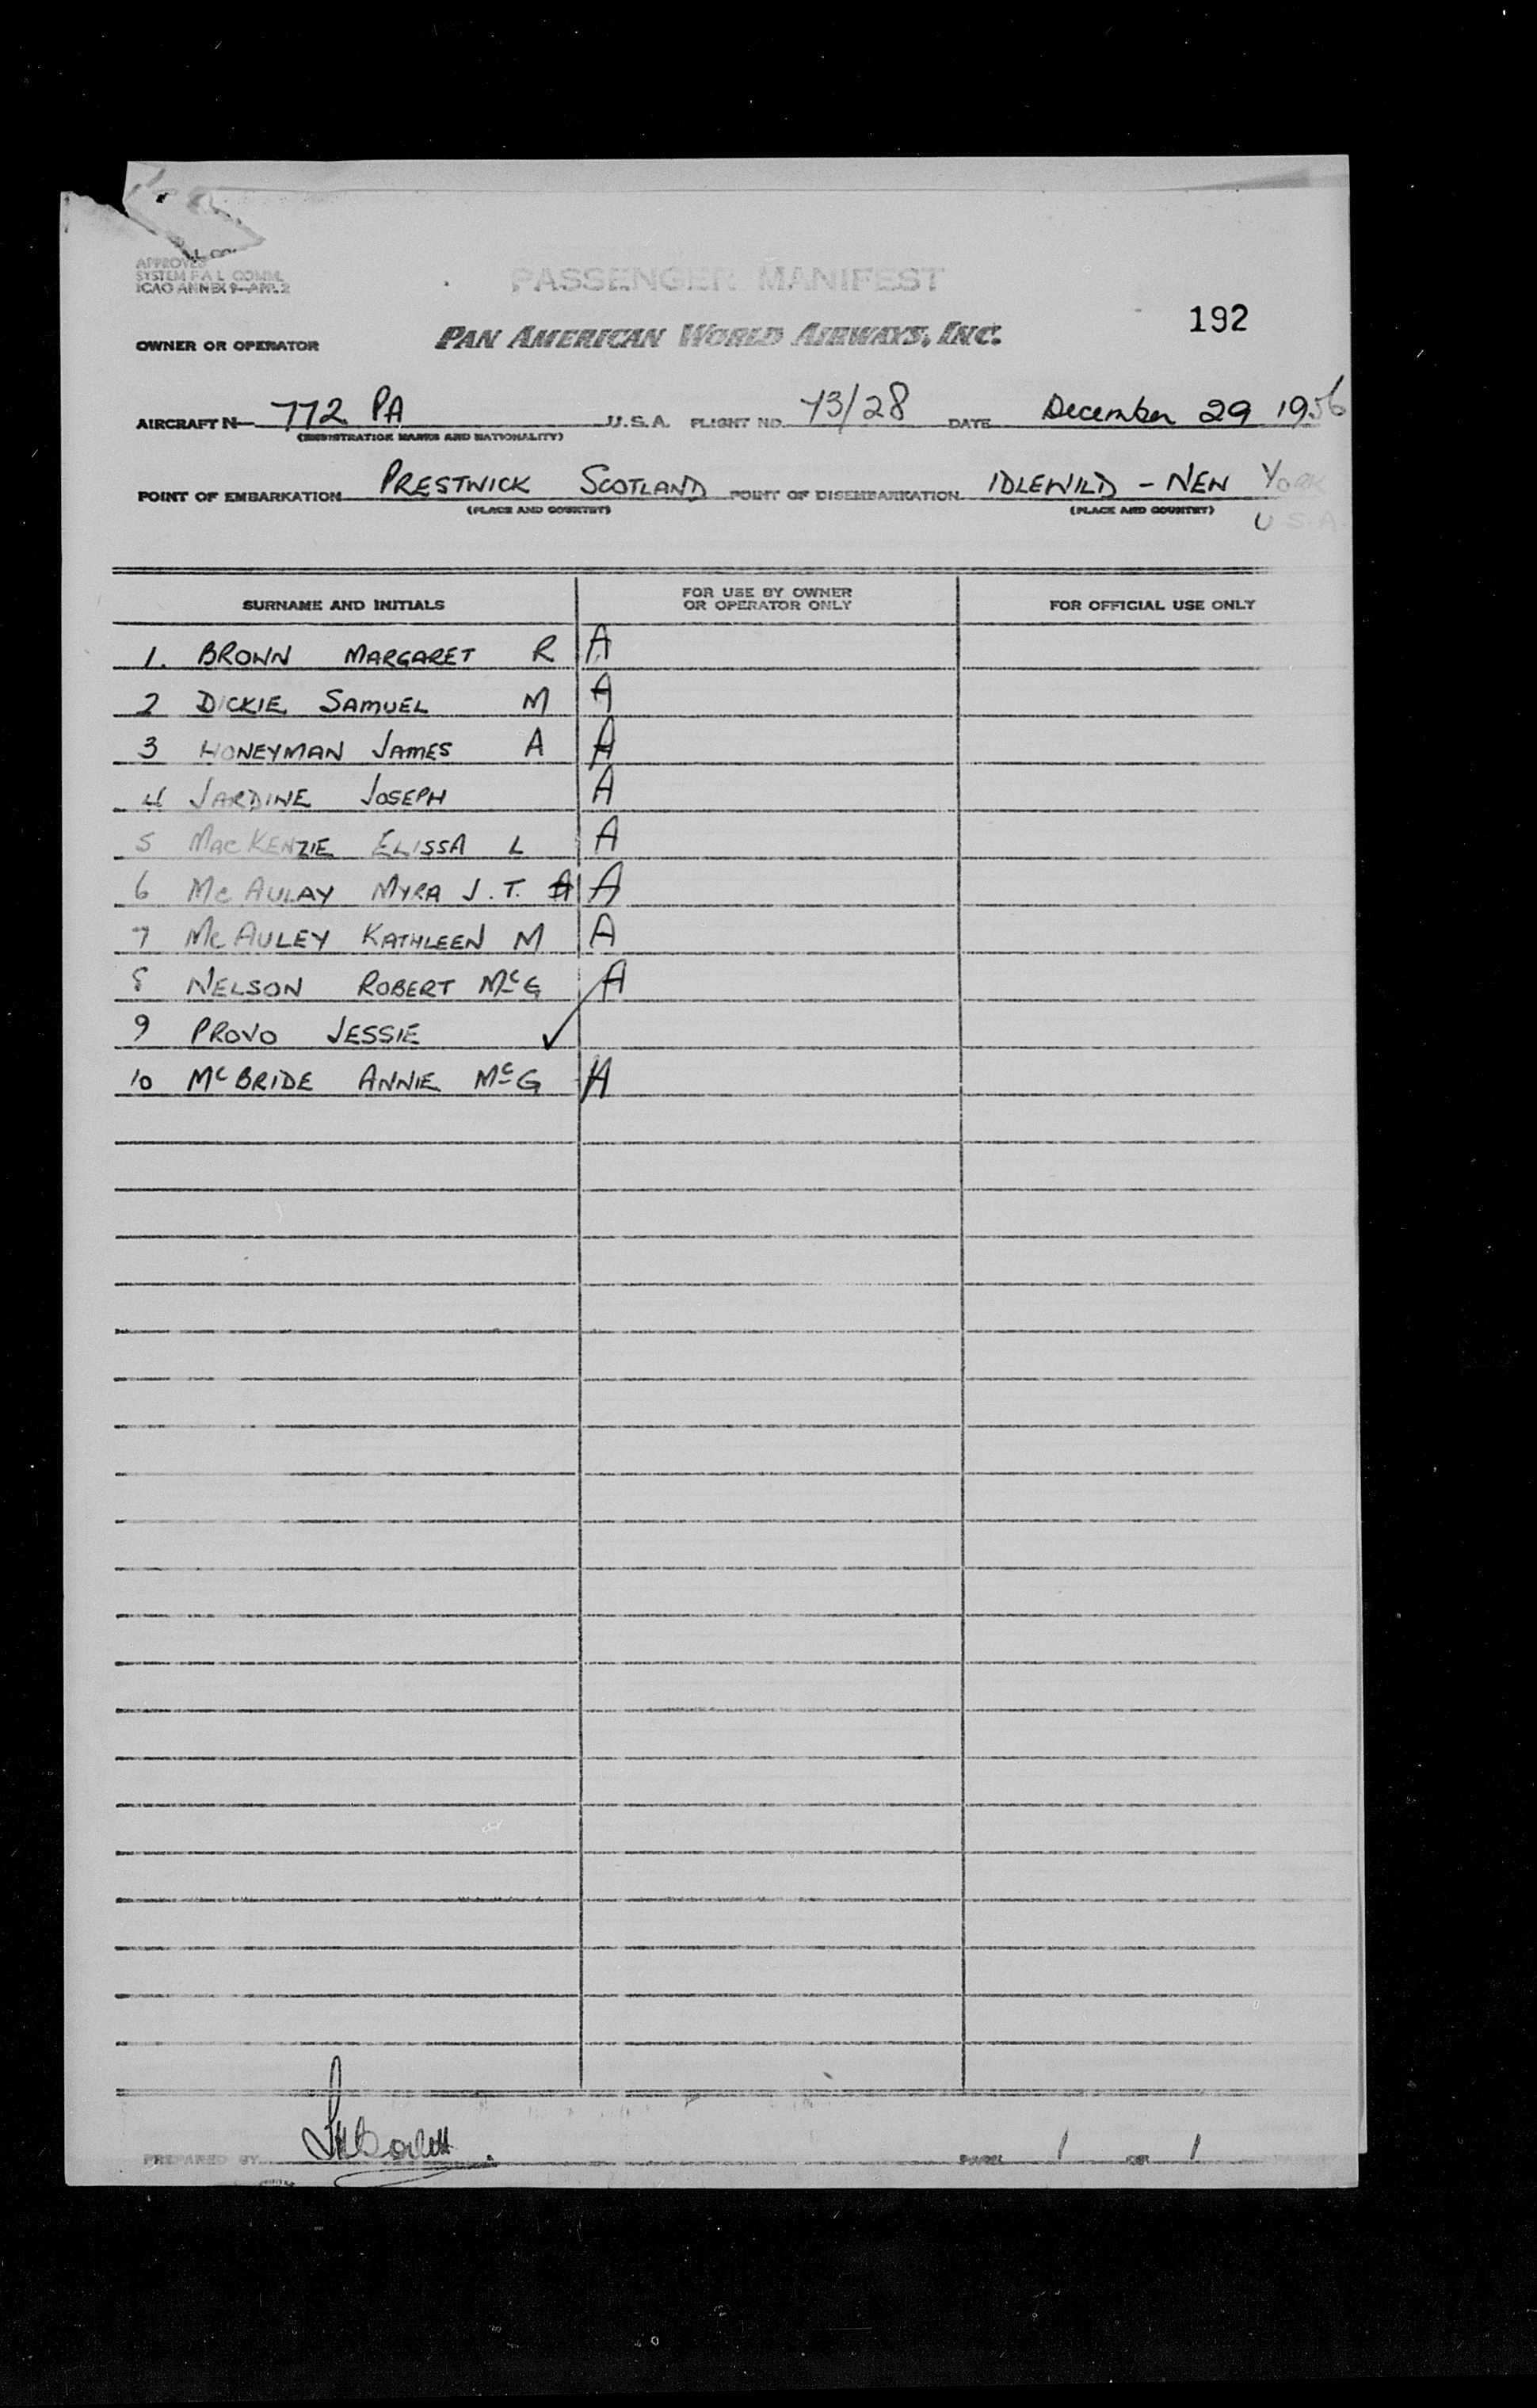 APPROVED
SYSTEM F A L COMM.
ICAO ANNEX 9-APP. 2
PASSENGER MANIFEST
192
OWNER OR OPERATOR PAN AMERICAN WORLD AIRWAYS, INC.
AIRCRAFT N 772 PA U.S.A. FLIGHT NO. 73/28 DATE December 29 1956
(REGISTRATION MARKS AND NATIONALITY)
POINT OF EMBARKATION PRESTWICK SCOTLAND POINT OF DISEMBARKATION IDLEWILD - NEW YORK
(PLACE AND COUNTRY) (PLACE AND COUNTRY) U.S.A.
SURNAME AND INITIALS FOR USE BY OWNER OR OPERATOR ONLY FOR OFFICIAL USE ONLY
1. BROWN MARGARET R A
2 DICKIE SAMUEL M A
3 HONEYMAN JAMES A A
4 JARDINE JOSEPH A
5 MacKENZIE ELISSA L A
6 McAULAY MYRA J.T. A A
7 McAULEY KATHLEEN M A
8 NELSON ROBERT McG A
9 PROVO JESSIE ✓
10 McBRIDE ANNIE McG A
PREPARED BY PAGE 1 OF 1